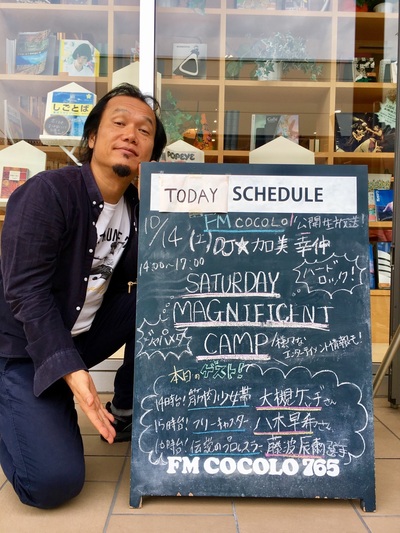 しごとば
POPEYE
TODAY SCHEDULE
10/14 (土)
FM COCOLO!! 公開生放送
DJ★加美 幸伸
14:00~17:00
SATURDAY
MAGNIFICENT
CAMP
ハードロック!
ジャパメタ
様々な
エンターテインメント情報も!
本日のゲスト!!
14時台! 筋肉少女帯 大槻ケンヂさん
15時台! フリーキャスター 八木早希さん
16時台! 伝説のプロレスラー 藤波辰爾選手
FM COCOLO 765